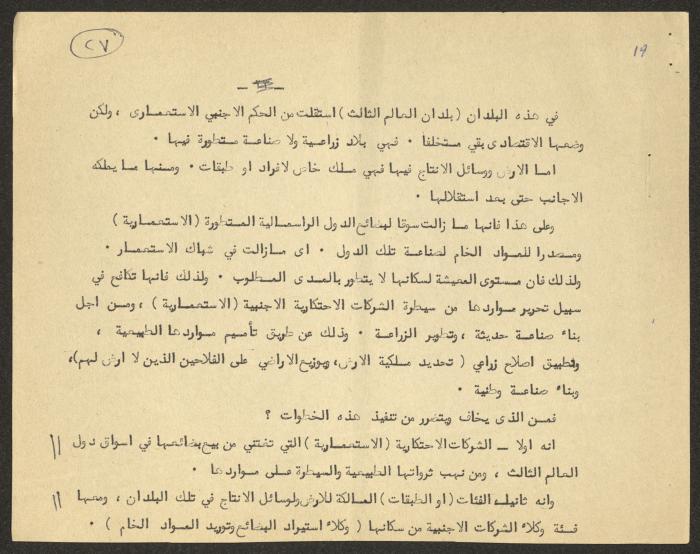 ٢٧
19
في هذه البلدان ( بلدان العالم الثالث ) استقلت من الحكم الاجنبي الاستعمارى ، ولكن
وضعها الاقتصادى بقي متخلفا ٠ فهي بلاد زراعية ولا صناعة متطورة فيها ٠
اما الارض ووسائل الانتاج فيها فهي ملك خاص لافراد او طبقات ٠ ومنها ما يملكه
الاجانب حتى بعد استقلالها ٠
وعلى هذا فانها ما زالت سوقا لبضائع الدول الراسمالية المتطورة ( الاستعمارية )
ومصدرا للمواد الخام لصناعة تلك الدول ٠ اى مازالت في شباك الاستعمار ٠
ولذلك فان مستوى المعيشة لسكانها لا يتطور بالمدى المطلوب ٠ ولذلك فانها تكافح في
سبيل تحرير مواردها من سيطرة الشركات الاحتكارية الاجنبية ( الاستعمارية ) ، ومن اجل
بناء صناعة حديثة ، وتطوير الزراعة ٠ وذلك عن طريق تأميم مواردها الطبيعية ،
وتطبيق اصلاح زراعي ( تحديد ملكية الارض، وتوزيع الاراضي على الفلاحين الذين لا ارض لهم)،
وبناء صناعة وطنية ٠
فمن الذى يخاف ويتضرر من تنفيذ هذه الخطوات ؟
انه اولا ــ الشركات الاحتكارية ( الاستعمارية ) التي تغتني من بيع بضائعها في اسواق دول
العالم الثالث ، ومن نهب ثرواتها الطبيعية والسيطرة على مواردها ٠
وانه ثانيا ــ الفئات ( او الطبقات ) المالكة للارض ولوسائل الانتاج في تلك البلدان ، ومعها
فئة وكلاء الشركات الاجنبية من سكانها ( وكلاء استيراد البضائع وتوريد المواد الخام ) ٠